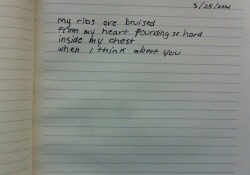 my ribs are bruised
from my heart pounding so hard
inside my chest
when I think about you